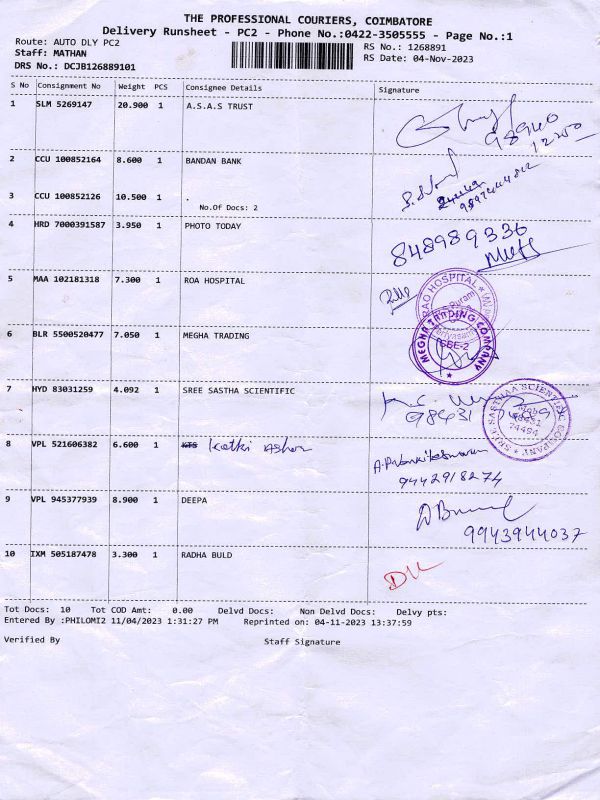 THE PROFESSIONAL COURIERS, COIMBATORE
Delivery Runsheet - PC2 - Phone No.:0422-3505555 - Page No.:1
Route: AUTO DLY PC2
RS No.: 1268891
Staff: MATHAN
RS Date: 04-Nov-2023
DRS No.: DCJB126889101
S No Consignment No Weight PCS Consignee Details Signature
1 SLM 5269147 20.900 1 A.S.A.S TRUST
98940
12200
2 CCU 100852164 8.600 1 BANDAN BANK
3 CCU 100852126 10.500 1 .
No.Of Docs: 2
4 HRD 7000391587 3.950 1 PHOTO TODAY
848989336
5 MAA 102181318 7.300 1 ROA HOSPITAL
RAO HOSPITAL
6 BLR 5500520477 7.050 1 MEGHA TRADING
MEGHA TRADING COMPANY
CBE-2
7 HYD 83031259 4.092 1 SREE SASTHA SCIENTIFIC
98431
SREE SASTHAA SCIENTIFIC COMPANY
74494
8 VPL 521606382 6.600 1 KTS
9442918274
9 VPL 945377939 8.900 1 DEEPA
9943944037
10 IXM 505187478 3.300 1 RADHA BULD
Tot Docs: 10 Tot COD Amt: 0.00 Delvd Docs: Non Delvd Docs: Delvy pts:
Entered By :PHILOMI2 11/04/2023 1:31:27 PM Reprinted on: 04-11-2023 13:37:59
Verified By Staff Signature